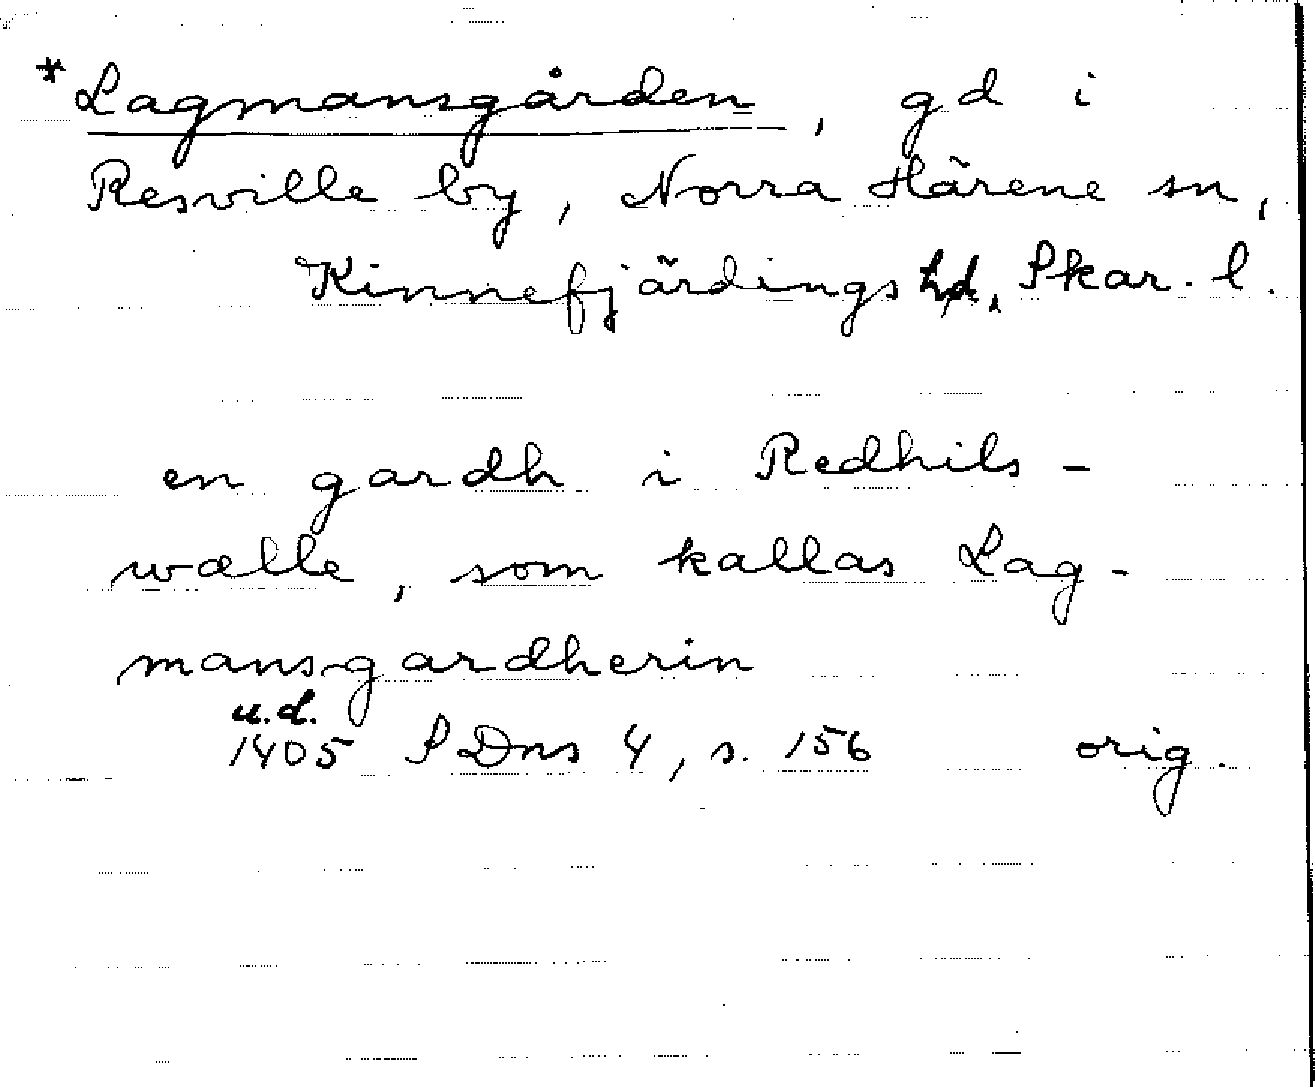 *Lagmansgården, gd i
Resville by, Norra Härene sn,
Kinnefjärdings hd, Skar. l.
en gardh i Redhils-
wælle, som kallas Lag-
mansgardherin
u.d.
1405 SDns 4, s. 156 orig.